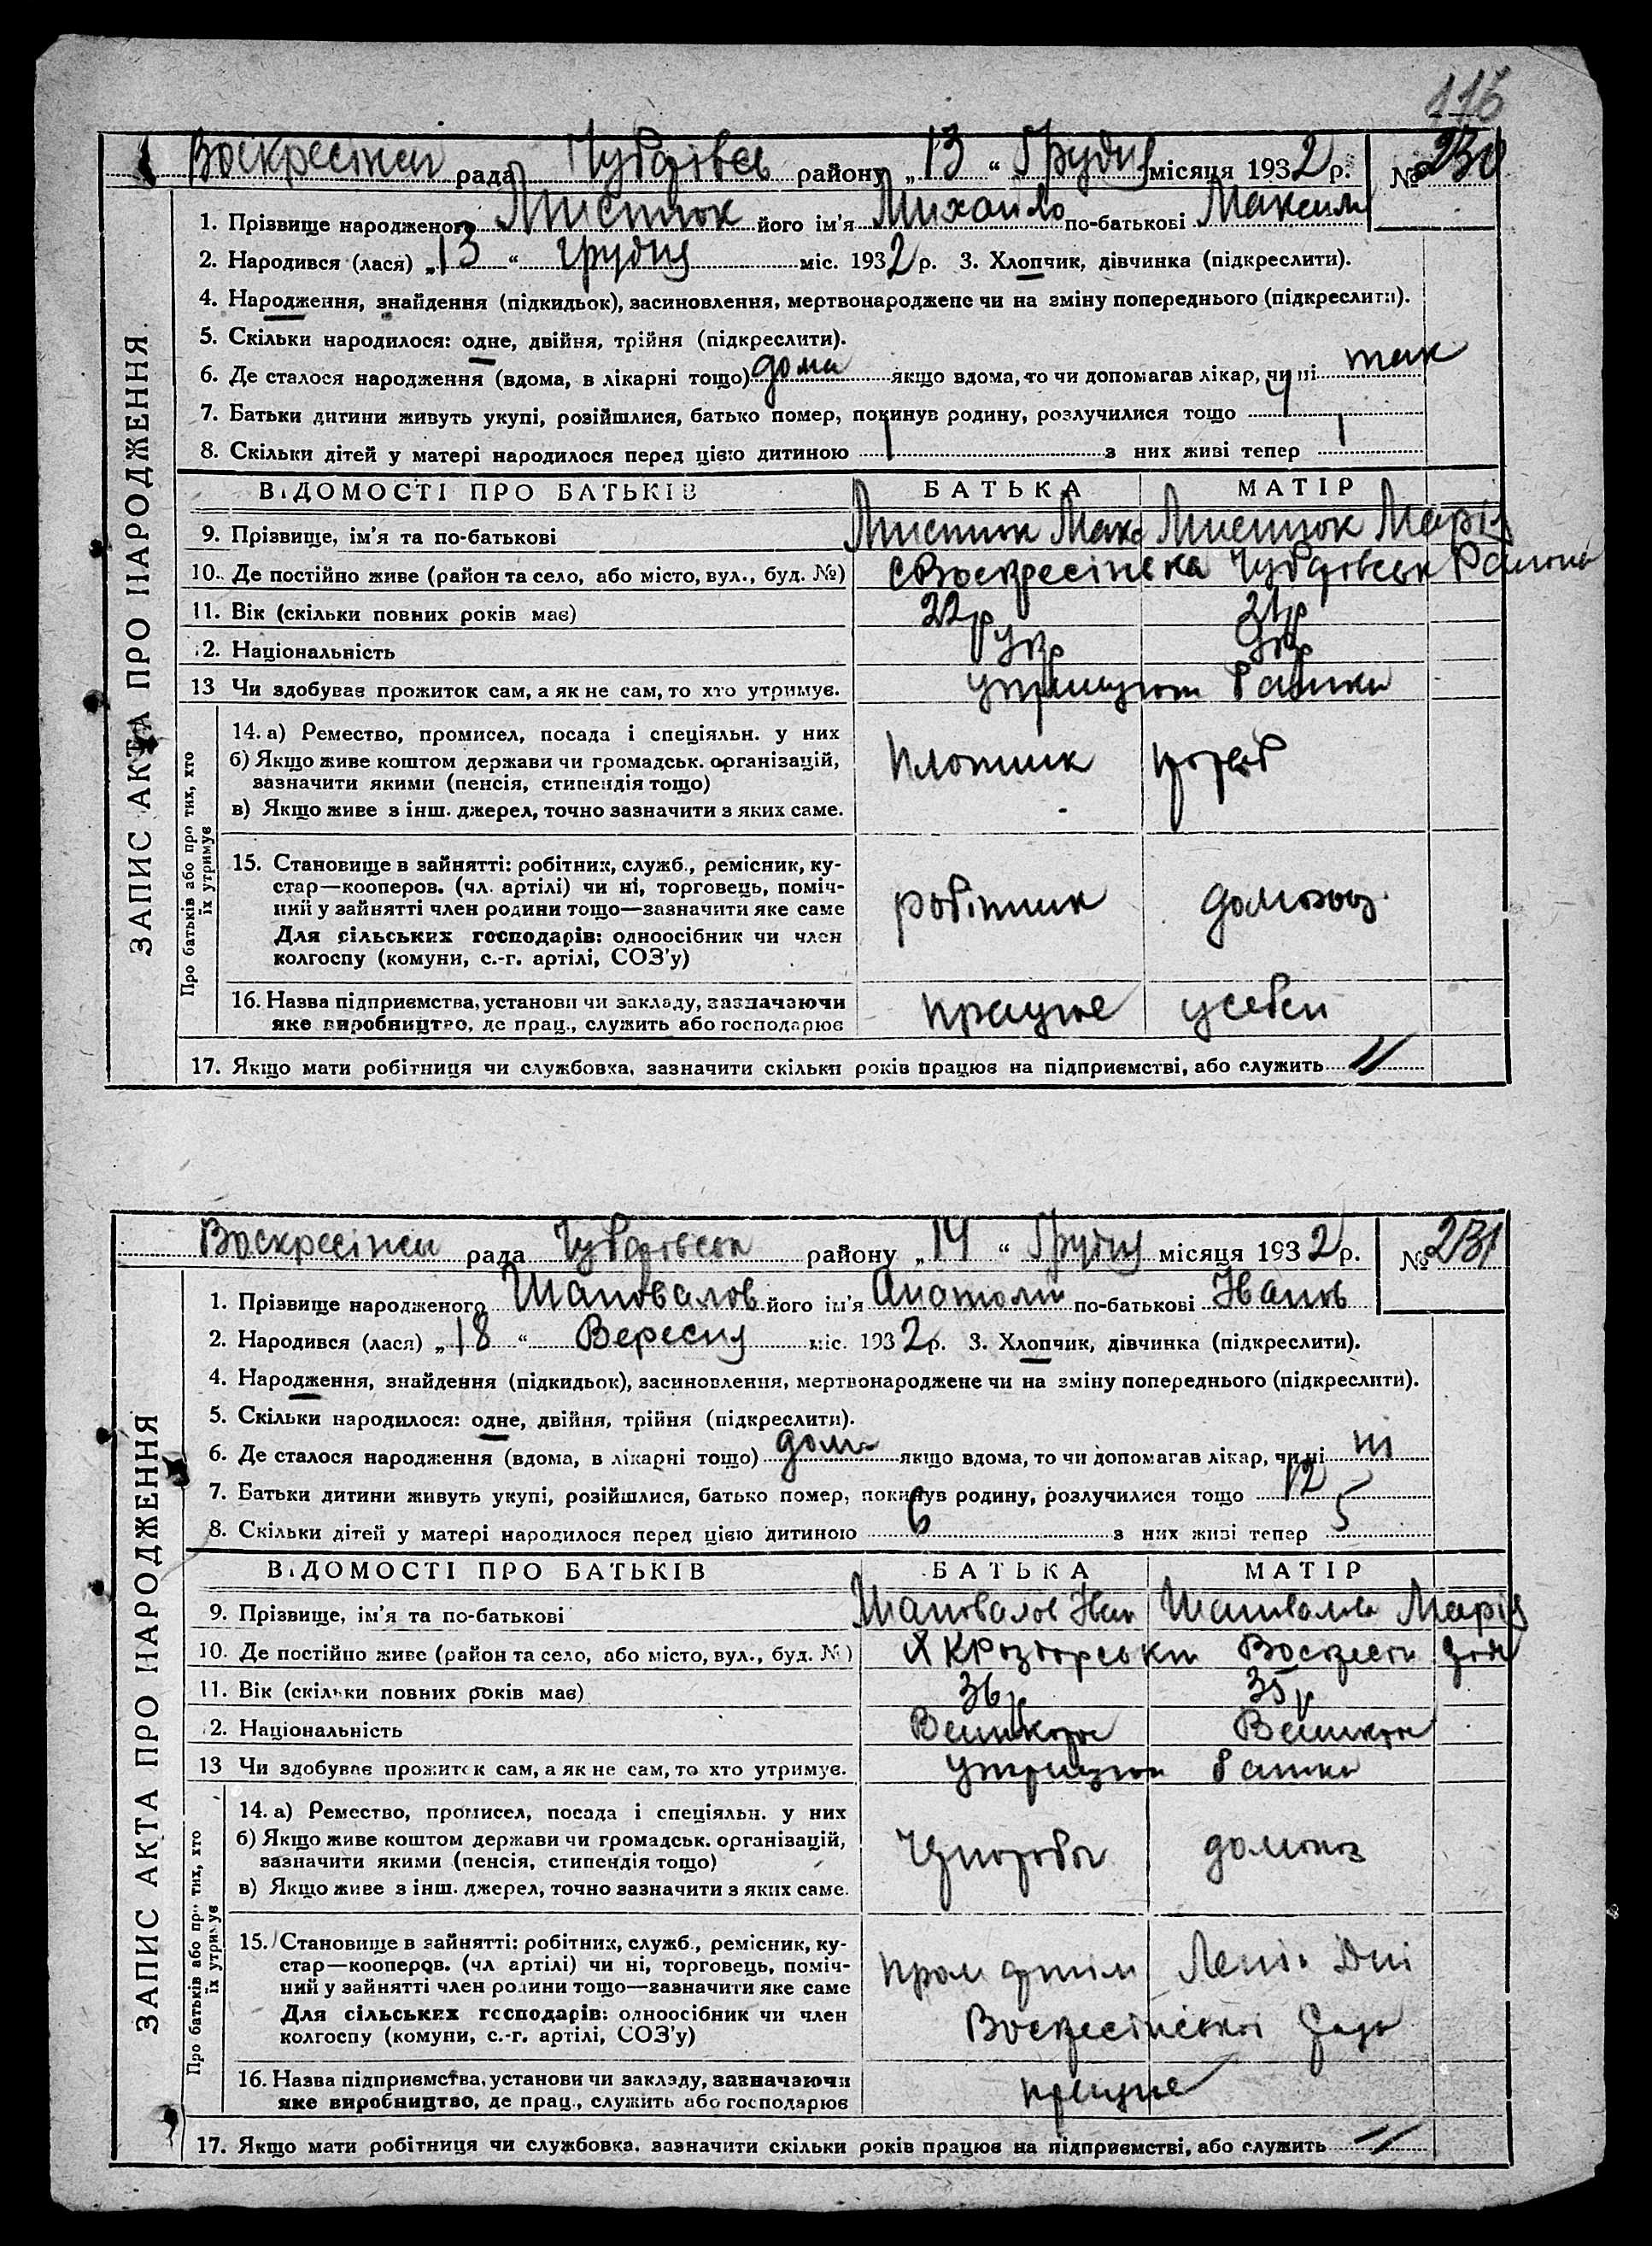 116
Воскресінськ рада Чубарівськ району „13“ Грудня місяця 1932 р. № 230
ЗАПИС АКТА ПРО НАРОДЖЕННЯ.
1. Прізвище народженого його ім'я Михайло по-батькові Максим
2. Народився (лася) „13“ грудня міс. 1932 р. 3. Хлопчик, дівчинка (підкреслити).
4. Народження, знайдення (підкидьок), засиновлення, мертвонароджене чи на зміну попереднього (підкреслити).
5. Скільки народилося: одне, двійня, трійня (підкреслити).
6. Де сталося народження (вдома, в лікарні тощо) дома якщо вдома, то чи допомагав лікар, чи ні так
7. Батьки дитини живуть укупі, розійшлися, батько помер, покинув родину, розлучилися тощо У
8. Скільки дітей у матері народилося перед цією дитиною 1 з них живі тепер 1
ВІДОМОСТІ ПРО БАТЬКІВ БАТЬКА МАТІР
9. Прізвище, ім'я та по-батькові Макс Марія
10. Де постійно живе (район та село, або місто, вул., буд. №) с Воскресінська Чубарівськ Району
11. Вік (скільки повних років має) 22р 21р
12. Національність Укр Укр
13 Чи здобуває прожиток сам, а як не сам, то хто утримує. утримують батьки
Про батьків або про тих, хто їх утримує
14. а) Ремество, промисел, посада і спеціяльн. у них
б) Якщо живе коштом держави чи громадськ. організацій,
зазначити якими (пенсія, стипендія тощо) Плотник
в) Якщо живе з інш. джерел, точно зазначити з яких саме.
15. Становище в зайнятті: робітник, служб., ремісник, ку-
стар—кооперов. (чл. артілі) чи ні, торговець, поміч-
ний у зайнятті член родини тощо—зазначити яке саме робітник домогоз
Для сільських господарів: одноосібник чи член
колгоспу (комуни, с.-г. артілі, СОЗ'у)
16. Назва підприємства, установи чи закладу, зазначаючи
яке виробництво, де прац., служить або господарює працює усебеи
17. Якщо мати робітниця чи службовка, зазначити скільки років працює на підприємстві, або служить
Воскресінськ рада Чубарівськ району „14“ Грудня місяця 1932 р. № 231
ЗАПИС АКТА ПРО НАРОДЖЕННЯ
1. Прізвище народженого Шаповалов його ім'я Анатолій по-батькові Іванов
2. Народився (лася) „18“ Вересня міс. 1932 р. 3. Хлопчик, дівчинка (підкреслити).
4. Народження, знайдення (підкидьок), засиновлення, мертвонароджене чи на зміну попереднього (підкреслити).
5. Скільки народилося: одне, двійня, трійня (підкреслити).
6. Де сталося народження (вдома, в лікарні тощо) дома якщо вдома, то чи допомагав лікар, чи ні ні
7. Батьки дитини живуть укупі, розійшлися, батько помер, покинув родину, розлучилися тощо 12
8. Скільки дітей у матері народилося перед цією дитиною 6 з них живі тепер 5
ВІДОМОСТІ ПРО БАТЬКІВ БАТЬКА МАТІР
9. Прізвище, ім'я та по-батькові Шаповалов Іван Шаповалова Марія
10. Де постійно живе (район та село, або місто, вул., буд. №)
11. Вік (скільки повних років має) 36р 35р
12. Національність Великор Великор
13 Чи здобуває прожиток сам, а як не сам, то хто утримує. утримують батьки
Про батьків або про тих, хто їх утримує
14. а) Ремество, промисел, посада і спеціяльн. у них
б) Якщо живе коштом держави чи громадськ. організацій,
зазначити якими (пенсія, стипендія тощо) домогоз
в) Якщо живе з інш. джерел, точно зазначити з яких саме.
15. Становище в зайнятті: робітник, служб., ремісник, ку-
стар—кооперов. (чл артілі) чи ні, торговець, поміч-
ний у зайнятті член родини тощо—зазначити яке саме пром артіли
Для сільських господарів: одноосібник чи член
колгоспу (комуни, с.-г. артілі, СОЗ'у) Воскресінської Ради
16. Назва підприємства, установи чи закладу, зазначаючи
яке виробництво, де прац., служить або господарює працює
17. Якщо мати робітниця чи службовка, зазначити скільки років працює на підприємстві, або служить